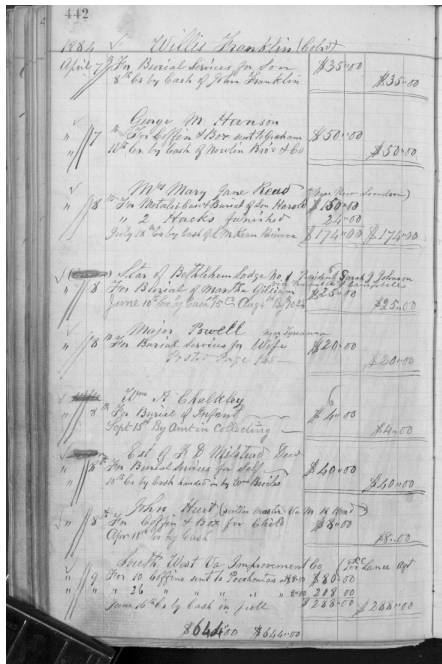 442
1884 Willis Franklin (Col'd)
April 7 For Burial Services for Son $35.00
8th Cr by Cash of John Franklin $35.00
George M. Hanson
" 7 For Coffin & Box sent to Graham $50.00
" Cr by Cash of Newlin Bro's & Co $50.00
Mrs Mary Jane Read
" 8th For Metalic Case & Burial of Son Harold $150.00
" 2 Hacks furnished 24.00
July Cr by Cash of $174.00 $174.00
Star of Bethlehem Lodge No. 1 President Sarah J. Johnson
" 8 For Burial of Martha $25.00
June 10th Cr by Cash $25.00
Major Powell
" 8th For Burial Services for Wife $20.00
Posted Page $20.00
Wm A Chalkley
" 8th For Burial of Infant $4.00
Sept 15th By Amt in Collecting $4.00
Est of Milstead Decd
" 8th For Burial Services for Self $40.00
Cr by Cash handed in by $40.00
John Hurt
" 8th For Coffin & Box for Child $8.00
Apr Cr by Cash $8.00
South West Va Improvement Co
" 9 For 10 Coffins sent to Pocahontas $80.00
" " 26 " " " " 208.00
June Cr by Cash in full $288.00 $288.00
$644.00 $644.00